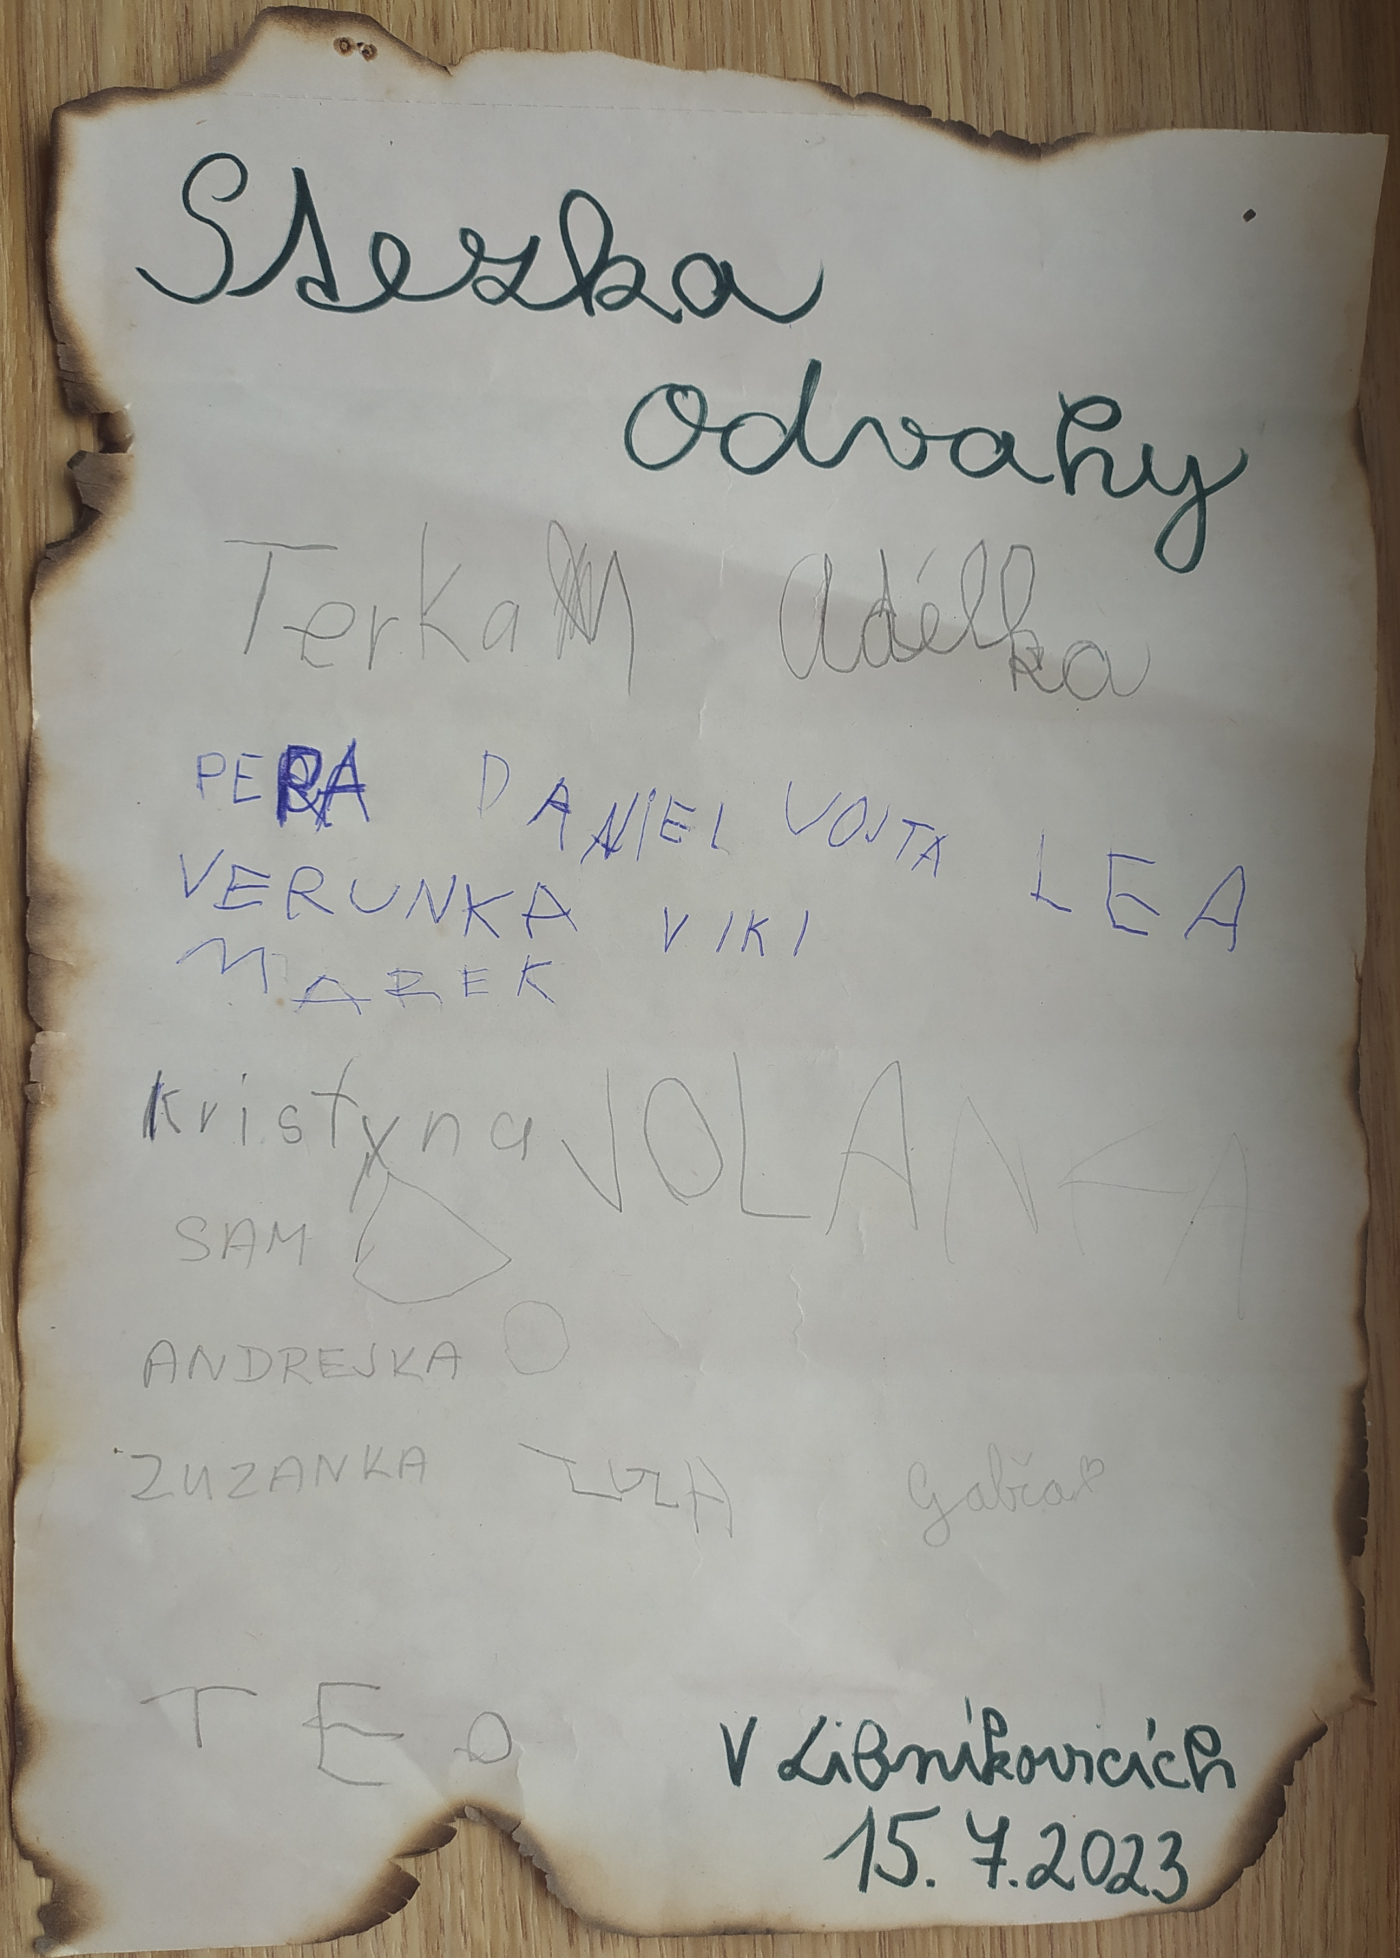 Stezka
odvahy
Terka M Adélka
DANIEL VOJTA LEA
VERUNKA VIKI
MAREK
Kristyna JOLANKA
SAM
ANDREJKA
ZUZANKA Gabča
TEO
V Libníkovicích
15.7.2023